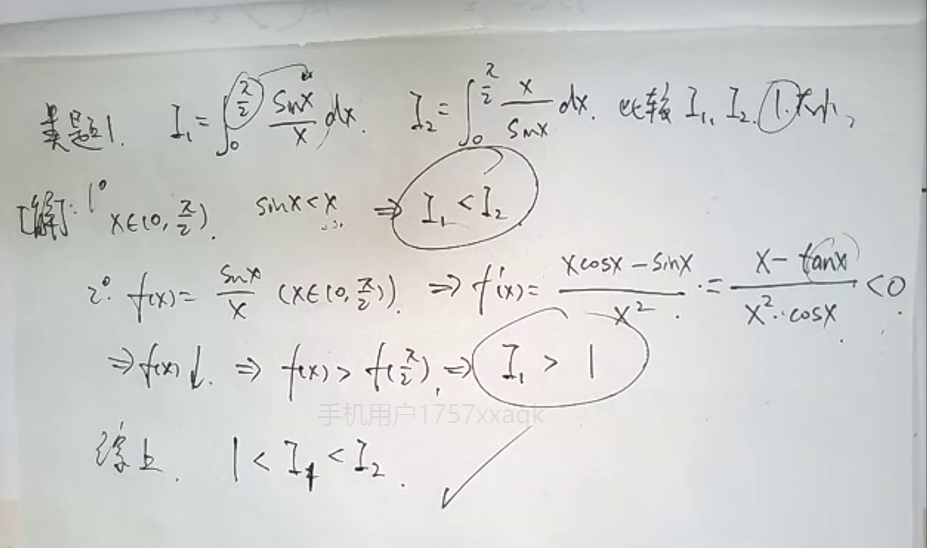 类题1. I₁=∫₀^(π/2) sinx/x dx. I₂=∫₀^(π/2) x/sinx dx. 比较 I₁, I₂, 1.大小,
[解]: 1° x∈(0,π/2). sinx<x. ⇒ I₁<I₂
2°. f(x)= sinx/x (x∈(0,π/2)). ⇒ f'(x)= (xcosx-sinx)/x² .= (x-tanx)/(x²·cosx) <0
⇒f(x)↓. ⇒ f(x)>f(π/2), ⇒ I₁ > 1
手机用户1757xxaqk
综上. 1<I₁<I₂.